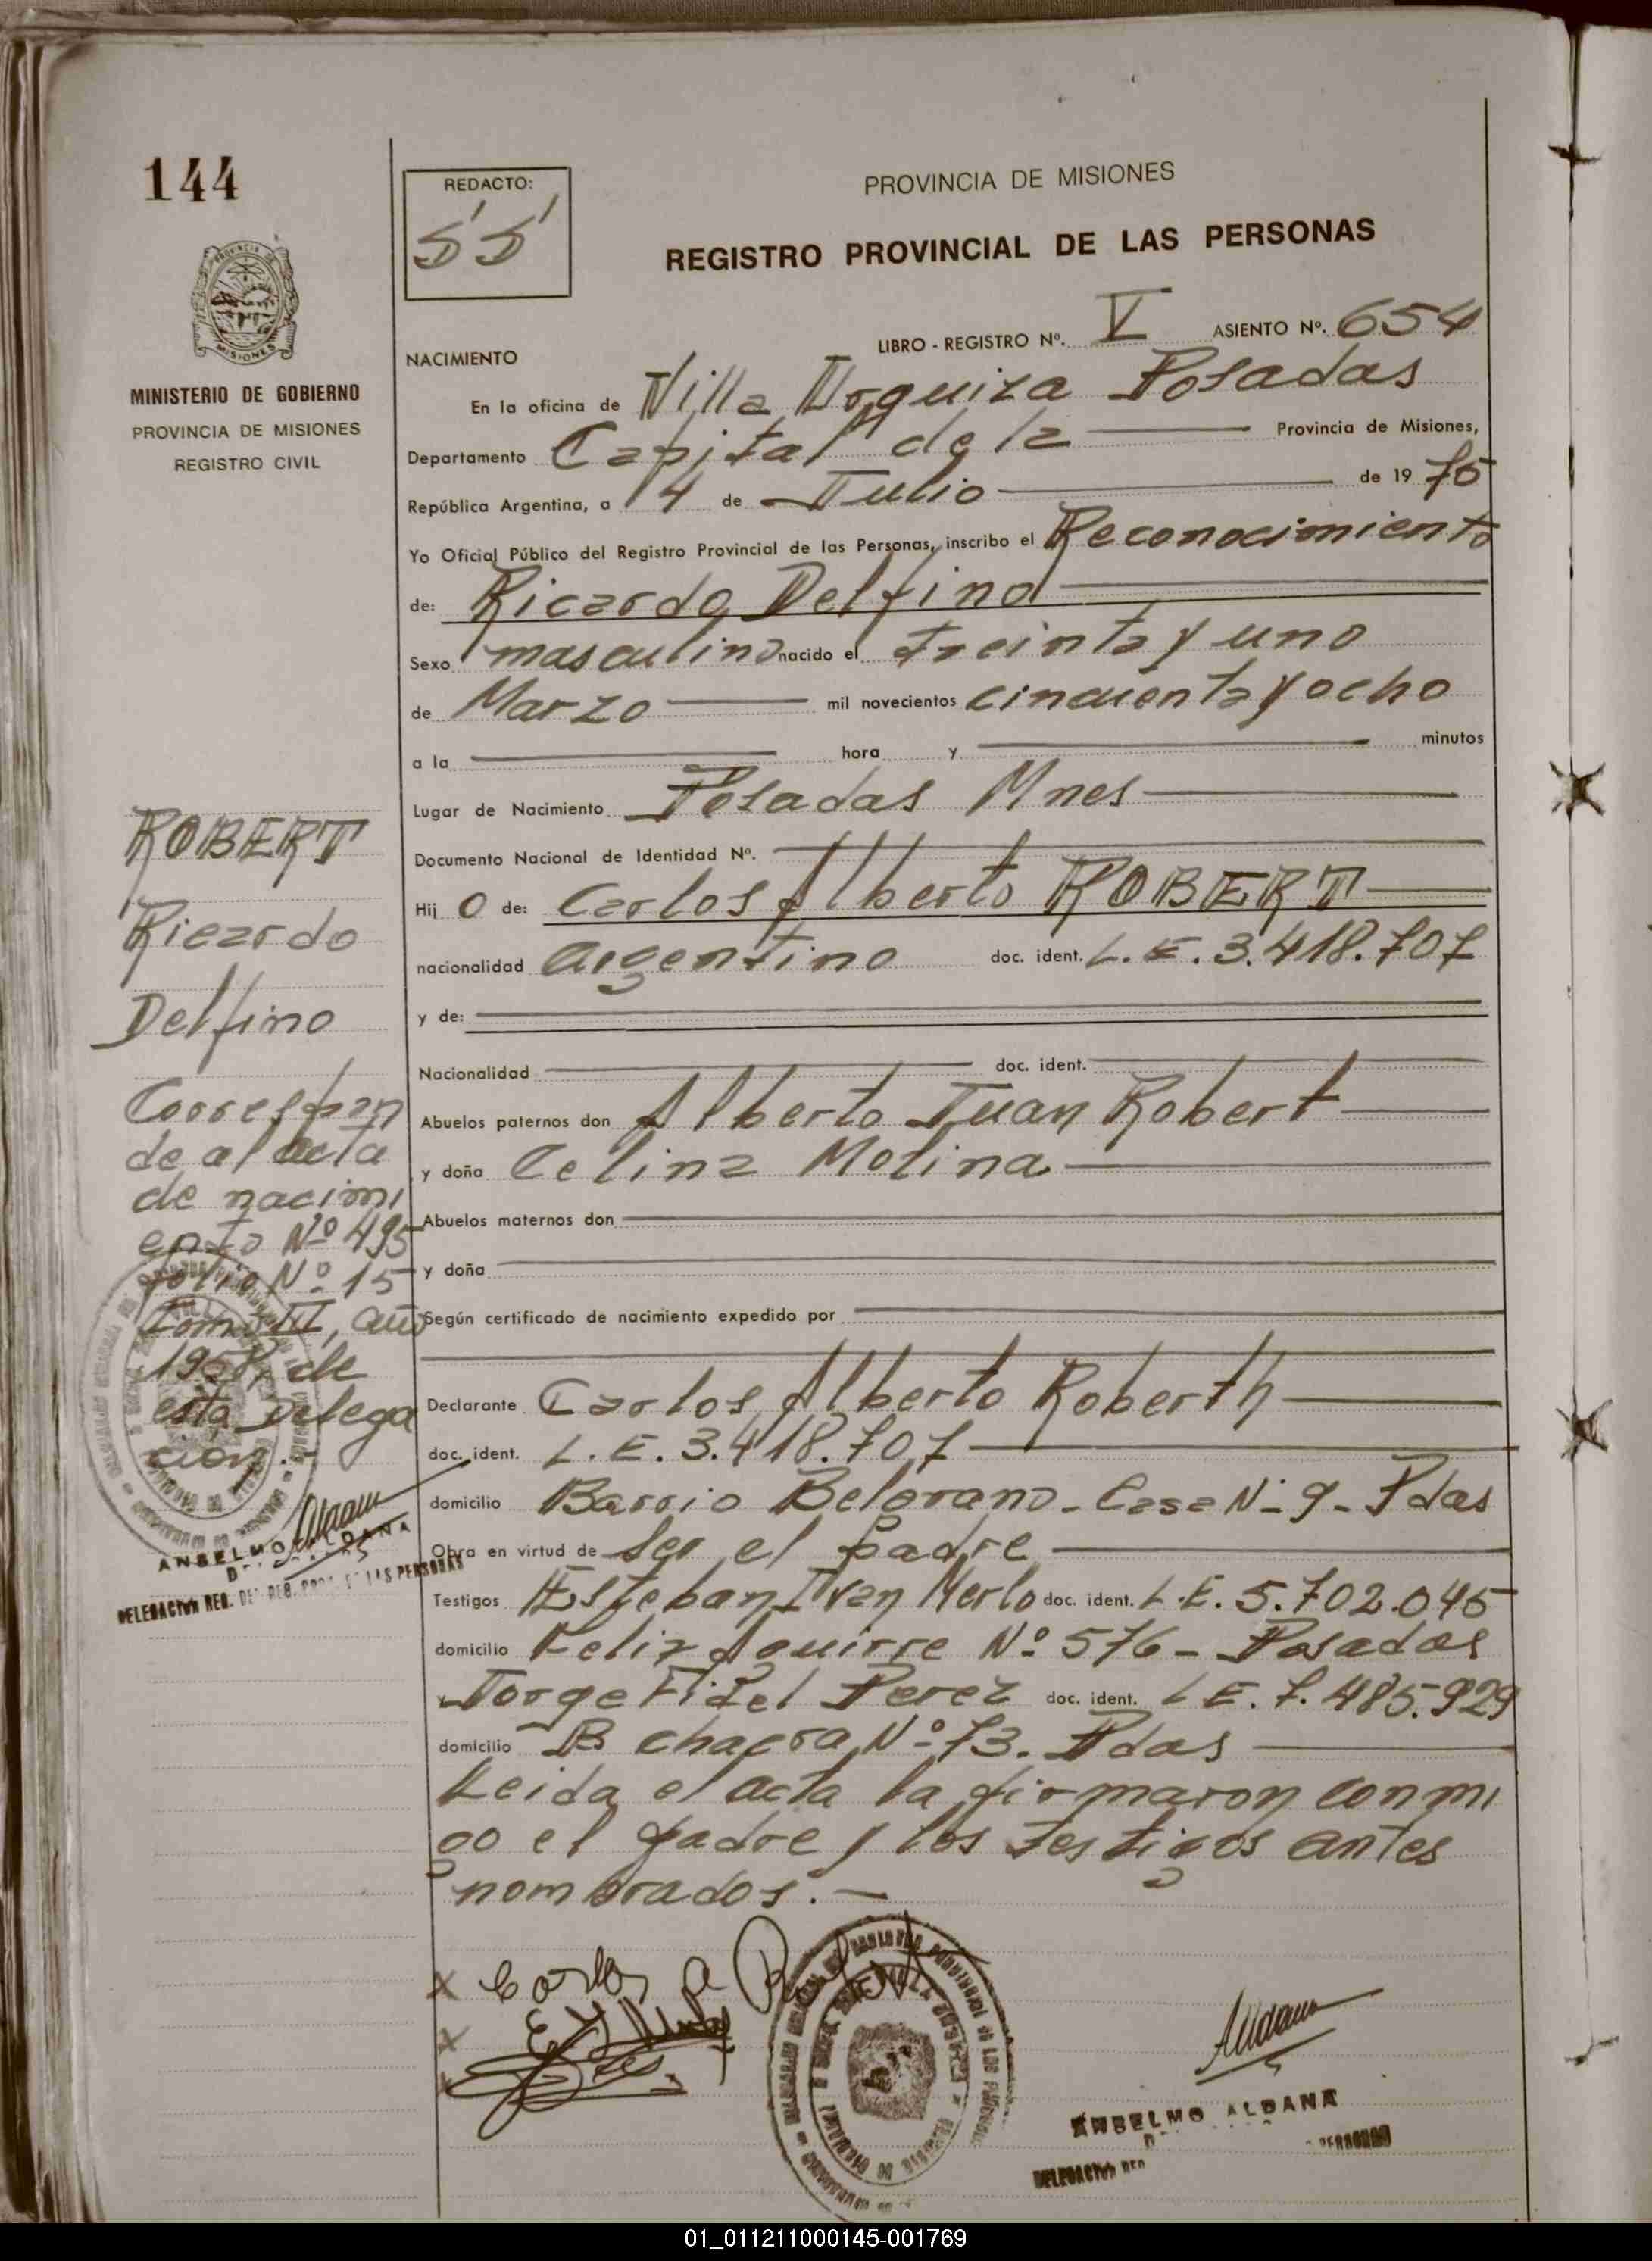 144
REDACTO:
55
PROVINCIA DE MISIONES
REGISTRO PROVINCIAL DE LAS PERSONAS
MINISTERIO DE GOBIERNO
PROVINCIA DE MISIONES
REGISTRO CIVIL
LIBRO - REGISTRO Nº. V ASIENTO Nº. 654
NACIMIENTO
En la oficina de Villa Urquiza Posadas
Departamento Capital de la Provincia de Misiones,
República Argentina, a 14 de Julio de 1975
Yo Oficial Público del Registro Provincial de las Personas, inscribo el Reconocimiento
de: Ricardo Delfino
Sexo masculino nacido el treinta y uno
de Marzo mil novecientos cincuenta y ocho
a la hora y minutos
Lugar de Nacimiento Posadas Mnes
Documento Nacional de Identidad Nº.
Hijo de: Carlos Alberto ROBERT
nacionalidad argentino doc. ident. L.E. 3.418.707
y de:
Nacionalidad doc. ident.
Abuelos paternos don Alberto Juan Robert
y doña Celina Molina
Abuelos maternos don
y doña
Según certificado de nacimiento expedido por
Declarante Carlos Alberto Roberth
doc. ident. L.E. 3.418.707
domicilio Barrio Belgrano - Casa N- 9 - Pdas
Obra en virtud de ser el padre
Testigos Esteban Ivan Merlo doc. ident. L.E. 5.702.045
domicilio Felix Aguirre Nº 576 - Posadas
y Jorge Fidel Perez doc. ident. L E. 7.485.929
domicilio B chacra Nº 73. Pdas
Leida el acta la firmaron conmi
go el padre y los testigos antes
nombrados. -
ROBERT
Ricardo
Delfino
Correspon
de al acta
de nacimi
ento Nº 495
folio Nº 15
tomo III, año
1958, de
esta Delega
cion. -
ANSELMO ALDANA
DELEGACION REG. DEL REG. PROV. DE LAS PERSONAS
x Carlos A Robert
x
x
ANSELMO ALDANA
DELEGACION REG PERSONAS
01_011211000145-001769